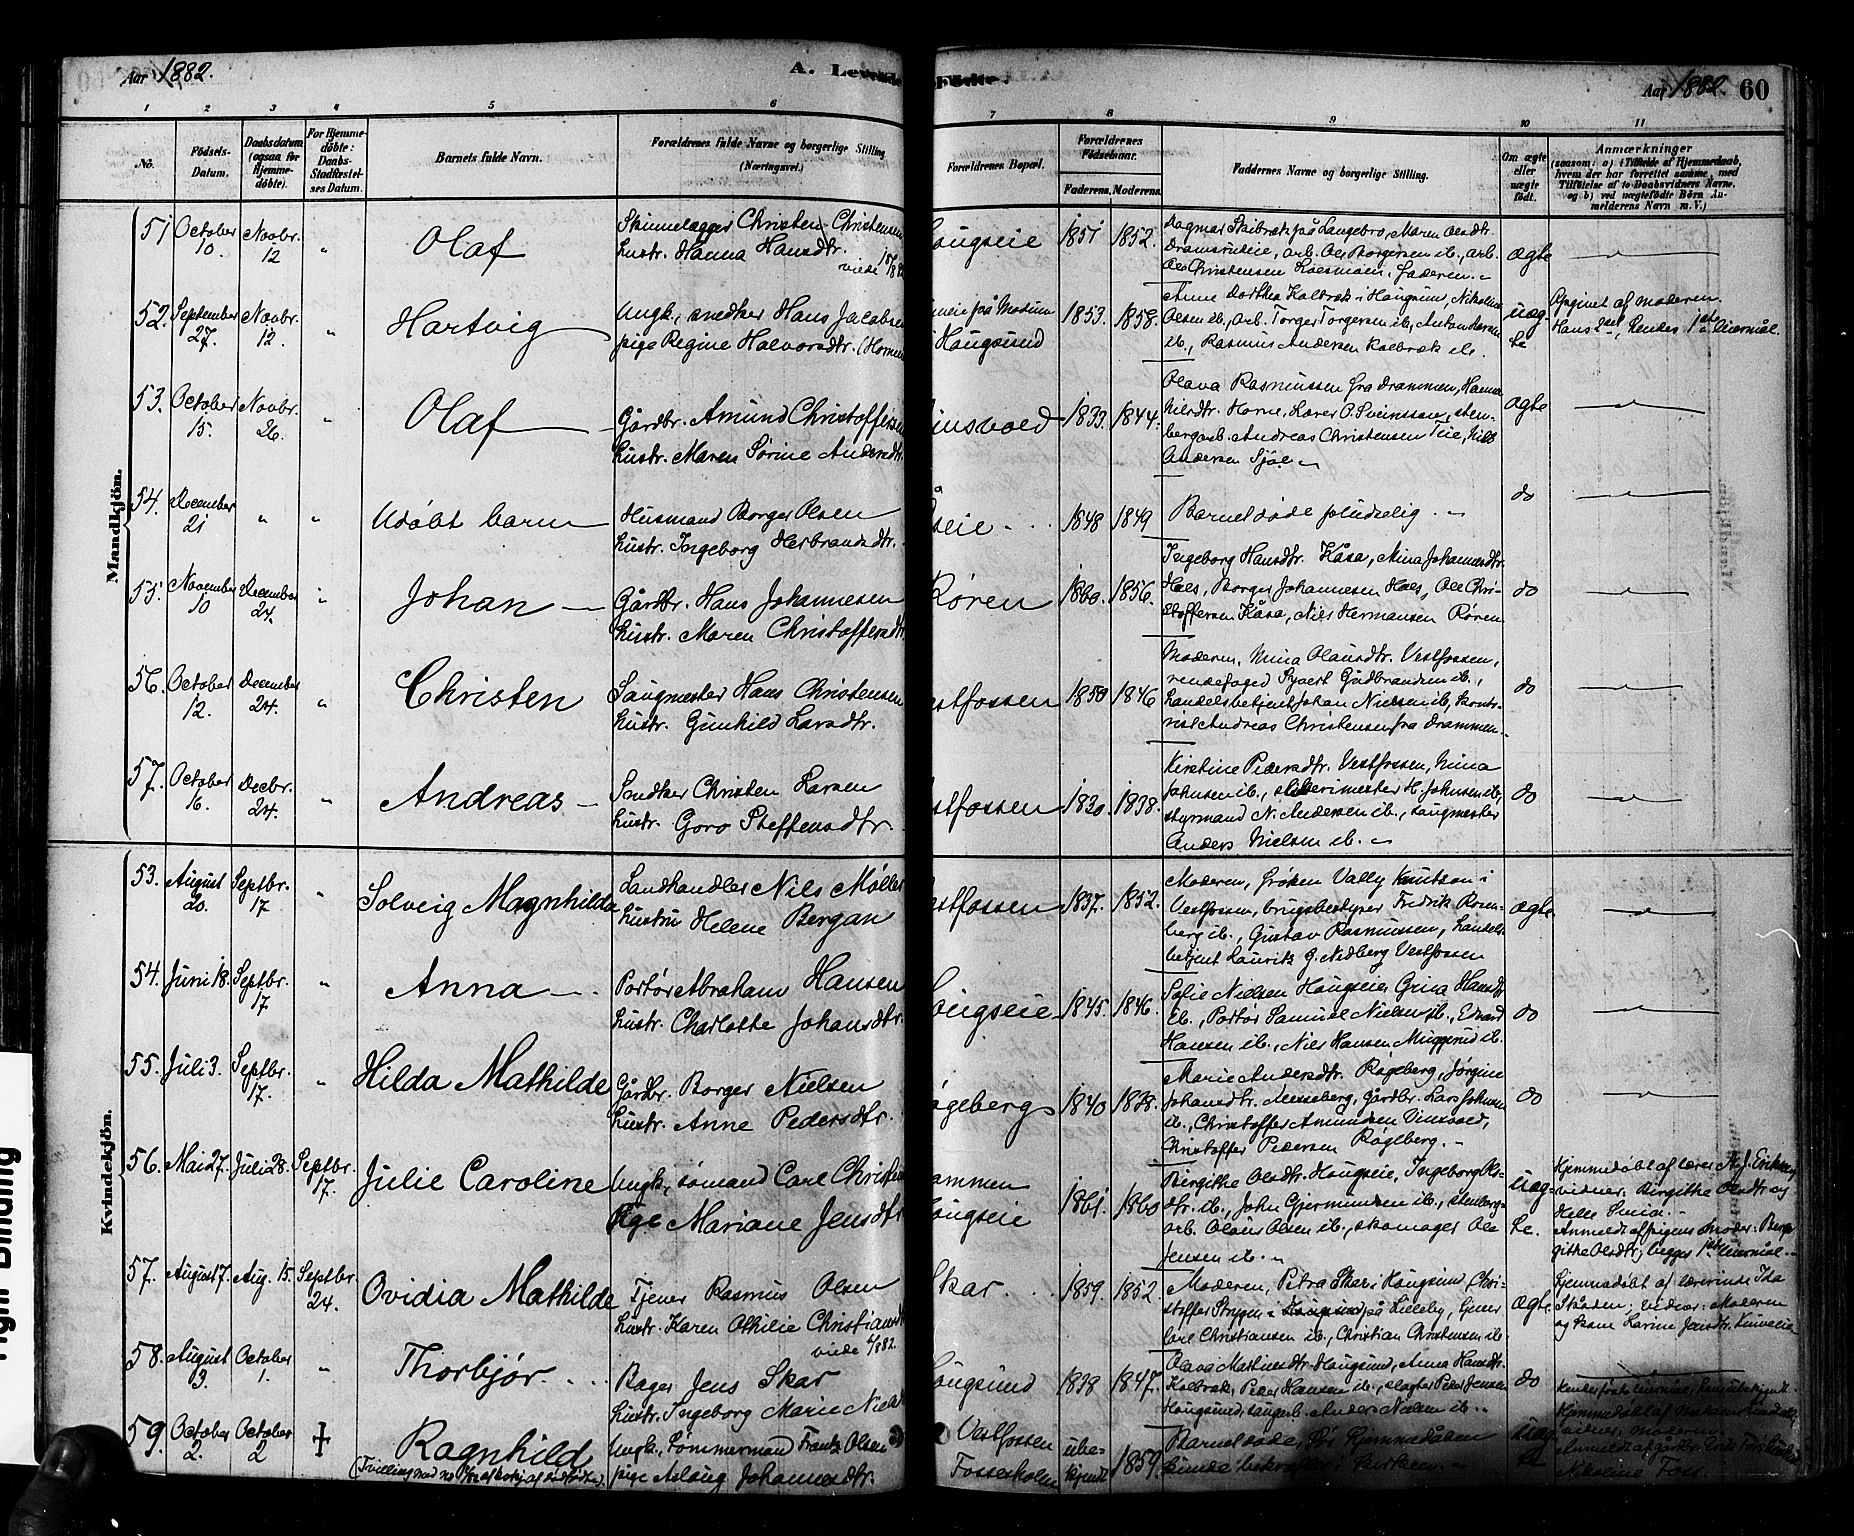 Aar 1882.
A. Levende Fødte.
Aar 1882. 60
1 2 3 4 5 6 7 8 9 10 11
No.
Fødsels-
Datum.
Daabsdatum
(ogsaa for
Hjemme-
døbte).
For Hjemme-
døbte:
Daabs-
Stadfæstel-
ses Datum.
Barnets fulde Navn.
Forældrenes fulde Navne og borgerlige Stilling
(Næringsvei.)
Forældrenes Bopæl.
Forældrenes
Fødselsaar.
Faderens. Moderens.
Faddernes Navne og borgerlige Stilling.
Om ægte
eller
uægte
født.
Anmærkninger
(saasom: a) i Tilfælde af Hjemmedaab,
hvem der har forrettet samme, med
Tilføielse af to Daabsvidners Navne,
og b) ved uægtefødte Børn An-
melderens Navn m. V.)
Mandkjön.
51 October 10. Novbr. 12 " Olaf
Skinnelægger Christen Christensen
hustr. Hanna Hansdtr.
viede
ougseie 1851 1852.
Dagmar Skibræk på Langebro, Maren Olsdtr.
Dramsrudeie, arb. Ole Borgersen ib., arb.
Ole Christensen Loesmoen, Faderen.
ægte
52. September 27. Novbr. 12. " Hartvig
Ungk. snedker Hans Jacobsen
pige Regine Halvorsdtr. (Horne
eie på Modum
Hougsund 1853. 1858.
Anne Dorthea Kolbræk i Hougsund, Nikoline
Olsen ib., arb. Torger Torgersen ib., Anton Larsen
ib., Rasmus Andersen Kolbræk ib.
uæg
te
Opgivet af moderen.
Hans 2det, hendes 1ste leiermål.
53. October 15. Novbr. 26. " Olaf
Gårdbr. Amund Christoffersen
hustr. Maren Sørine Andersdtr.
insvold 1833. 1844.
Olava Rasmussen fra Drammen, Hanna
Nilsdtr. Horne, Lærer O. Svensson, sten-
bergarb. Andreas Christensen Teie, Nils
Andersen Sjøl
ægte
54. December 21 " " Udöbt barn
Husmand Borger Olsen
hustr. Ingeborg Herbrandsdtr.
seie 1848 1849
Barnet døde pludselig.
do
55. November 10 December 24. Johan
Gårdbr. Hans Johannesen
hustr. Maren Christoffersdtr.
Røren 1860. 1856.
Ingeborg Hansdtr. Kåsa, Mina Johannesdtr.
Hoes, Borger Johannesen Hoes, Ole Chri-
stoffersen Kåsa, Niels Hermansen Røren
do
56. October 12. December 24. " Christen
Saugmester Hans Christensen
hustr. Gunhild Larsdtr.
estfossen 1850 1846
Moderen, Mina Olausdtr. Vestfossen,
rendefoged Syvert Gudbrandsen ib.,
handelsbetjent Johan Nielsen ib., konto-
rist Andreas Christensen fra Drammen.
do
57. October 16. Decbr. 24. " Andreas
Snedker Christen Larsen
hustr. Goro Steffensdtr.
stfossen 1830. 1838.
Kirstine Pedersdtr. Vestfossen, Mina
Johnsen ib., sliberimester H. Johnsen ib.,
styrmand N. Andersen ib., saugmester
Anders Nielsen ib.
do
Kvindekjön.
53. August 20. Septbr. 17 " Solveig Magnhilda
Landhandler Nils Møller
hustru Helene Bergan
estfossen 1837. 1852.
Moderen, frøken Vally Knutson i
Vestfossen, brugsbestyrer Fredrik Rosen-
berg ib., Gustav Rasmussen, handels-
betjent Lauritz G. Nedberg Vestfossen
ægte.
54. Juni 18. Septbr. 17 " Anna
Portør Abraham Hansen
hustr. Charlotte Johansdtr.
ougseie 1845. 1846.
Sofie Nielsen Hougseie, Grina Hansdtr
ib., Portør Samuel Nielsen ib., Edvard
Hansen ib., Nils Hansen Muggerud ib.
do
55. Juli 3. Septbr. 17. " Hilda Mathilde
Gårdbr. Borger Nielsen
hustr. Anne Pedersdtr.
ógeberg 1840 1838.
Marie Andersdtr. Røgeberg, Jørgine
Johansdtr. Næsseberg, gårdbr. Lars Johnsen
ib., Christoffer Amundsen Vinsvold,
Christoffer Pedersen Røgeberg.
do
56. Mai 27. Juli 28. Septbr. 17. Julie Caroline
Ungk., sømand Carl Christian
Pige Mariane Jensdtr
ammen
ougseie 1861. 1860
Birgithe Olsdtr. Hougseie, Ingeborg Ols-
dtr. ib., John Gjermundsen ib., stenberg-
arb. Olaus Olsen ib., skomager Ole
Jensen ib.
uæg-
te.
Hjemmedøbt af lærer A. J. Eriksen,
vidner: Birgithe Olsdtr og
Helle
Anmeldt af pigens moder: Bir-
githe Olsdtr; begges 1ste leiermål.
57. August 7. Aug. 15. Septbr. 24. Ovidia Mathilde
Tjener Rasmus Olsen
hustr. Karen Othilie Christiansd
viede 4/882.
Skar. 1859. 1852.
Moderen, Petra Skar i Hougsund, Chri-
stoffer Strygen på Lilleby, tjener
Carl Christiansen ib., Christian Christensen ib.
ægte.
Hjemmedøbt af lærerinde Ida
Skåden; vidner: Moderen
og kone Karine Jensdtr.
58. August 3. October 1. " Thorbjør.
Bager Jens Skar
hustr. Ingeborg Marie Niels
ougsund 1838 1847.
Olava Martinsdtr. Hougsund, Anna Hansdtr.
Kolbræk, Peder Hansen ib., slagter Peder Jensen
Hougsund, saugarb. Anders Nielsen ib.
do
59. October 2. October 2 † Ragnhild
(Tvilling med no
Ungk., Tømmermand Frantz Olsen
pige Aslaug Johannesdtr.
Vestfossen
Fossesholm ube-
kjendt 1859.
Barnet døde, før Hjemmedåben
kunde bekræftes i kirken.
uæg
te
Nikoline Foss.